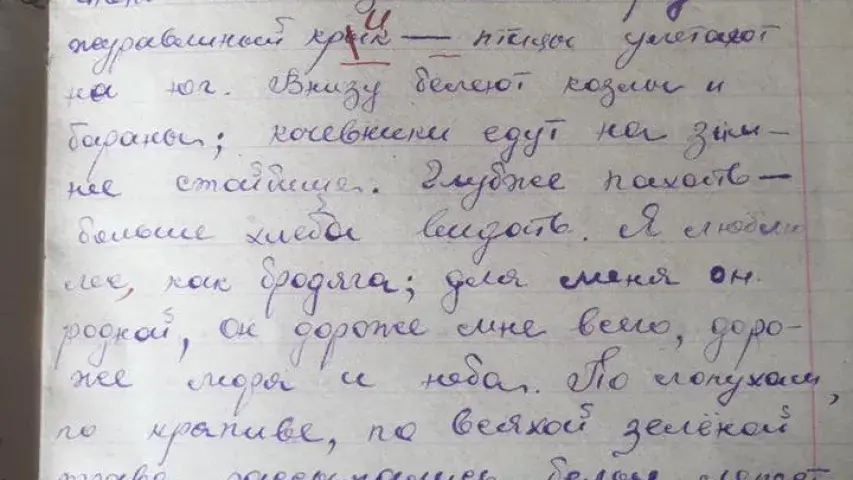 журавлиный крик — птицы улетают
на юг. Внизу белеют козлы и
бараны; кочевники едут на зим-
нее стойбище. Глубже пахать —
больше хлеба видать. Я люблю
лес, как бродяга; для меня он
родной, он дороже мне всего, доро-
же моря и неба. По лопухам,
по крапиве, по всякой зелёной
траве рассыпались белые